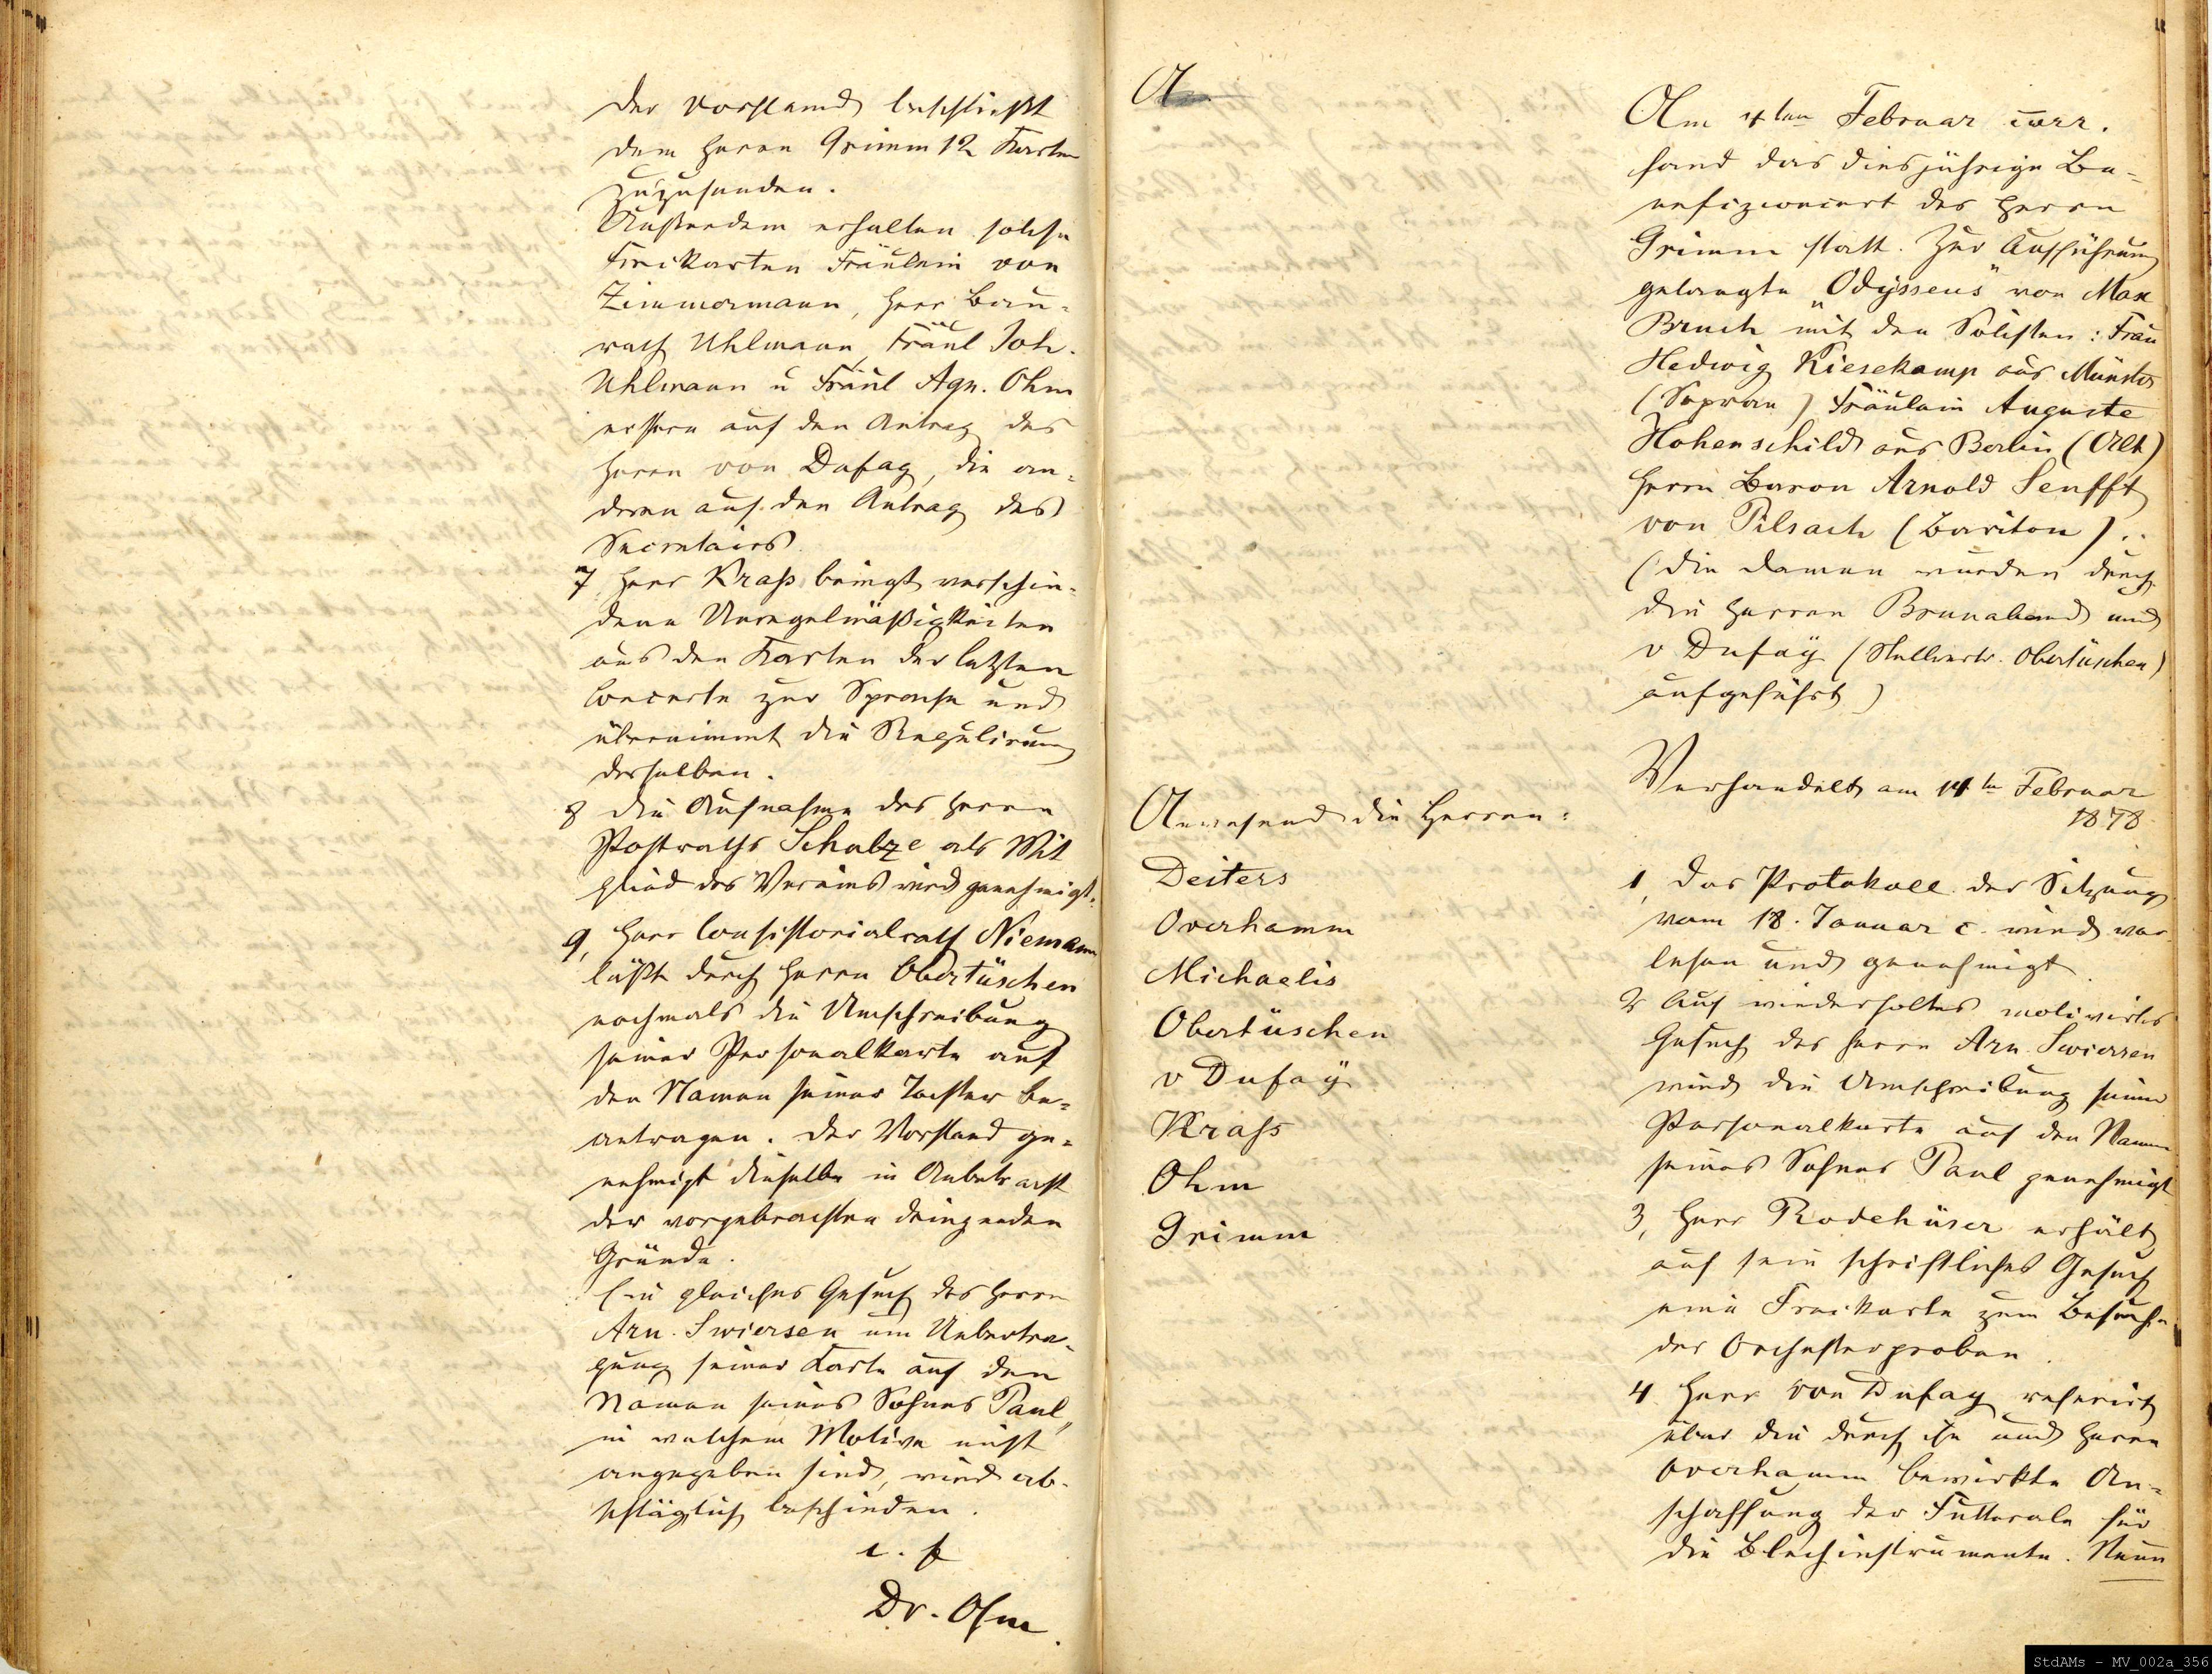 der Vorstand beschließt
dem Herrn Grimm 12 Karten
zuzusenden.
Außerdem erhalten solche
Freikarten Fräulein von
Zimmermann, Herr Bau-
rath Uhlmann, Fräul Joh.
Uhlmann u Fräul Agn. Ohm
erstere auf den Antrag des
Herrn von Dufay, die an-
deren auf den Antrag des
Secretairs.
7 Herr Kraß bringt verschie-
dene Unregelmäßigkeiten
aus den Karten der letzten
Concerte zur Sprache und
übernimmt die Regulirung
derselben.
8 die Aufnahme des Herrn
Postraths Schulze als Mit
glied des Vereins wird genehmigt.
9, Herr Consistorialrath Niemann
läßt durch Herrn Obertüschen
nochmals die Umschreibung
seiner Personalkarte auf
den Namen seiner Tochter be-
antragen. Der Vorstand ge-
nehmigt dieselbe in Anbetracht
der vorgebrachten dringenden
Gründe.
Ein gleiches Gesuch des Herrn
Arn. Swiersen um Uebertra-
gung seiner Karte auf den
Namen seines Sohnes Paul,
in welchem Motive nicht
angegeben sind, wird ab-
schläglich beschieden.
Dr. Ohm.
A
Am 4ten Februar curr.
fand das diesjährige Be-
nefizconcert des Herrn
Grimm statt. Zur Aufführung
gelangte „Odysseus" von Max
Bruch mit den Solisten: Frau
Hedwig Kiesekamp aus Münster
(Sopran) Fräulein Auguste
Hohenschild aus Berlin (Alt)
Herrn Baron Arnold Senfft
von Pilsach (Bariton)..
(Die Damen wurden durch
die Herren Brunabend und
v Dufaÿ (Stellvertr. Obertüschen)
aufgeführt)
Verhandelt am 14ten Februar
1878.
Anwesend die Herren:
Deiters
Overhamm
Michaelis
Obertüschen
v Dufaÿ
Krass
Ohm
Grimm
1, Das Protokoll der Sitzung
vom 18. Januar c. wird ver
lesen und genehmigt.
2 Auf wiederholtes motivirtes
Gesuch des Herrn Arn. Swiersen
wird die Umschreibung seiner
Personalkarte auf den Namen
seines Sohnes Paul genehmigt
3, Herr Rodehüser erhält
auf sein schriftliches Gesuch
eine Freikarte zum Besuche
der Orchesterproben.
4 Herr von Dufay referirt
über die durch ihn und Herrn
Overhamm bewirkte An-
schaffung der Futterale für
die Blechinstrumente. Neun
StdAMs - MV_002a_356